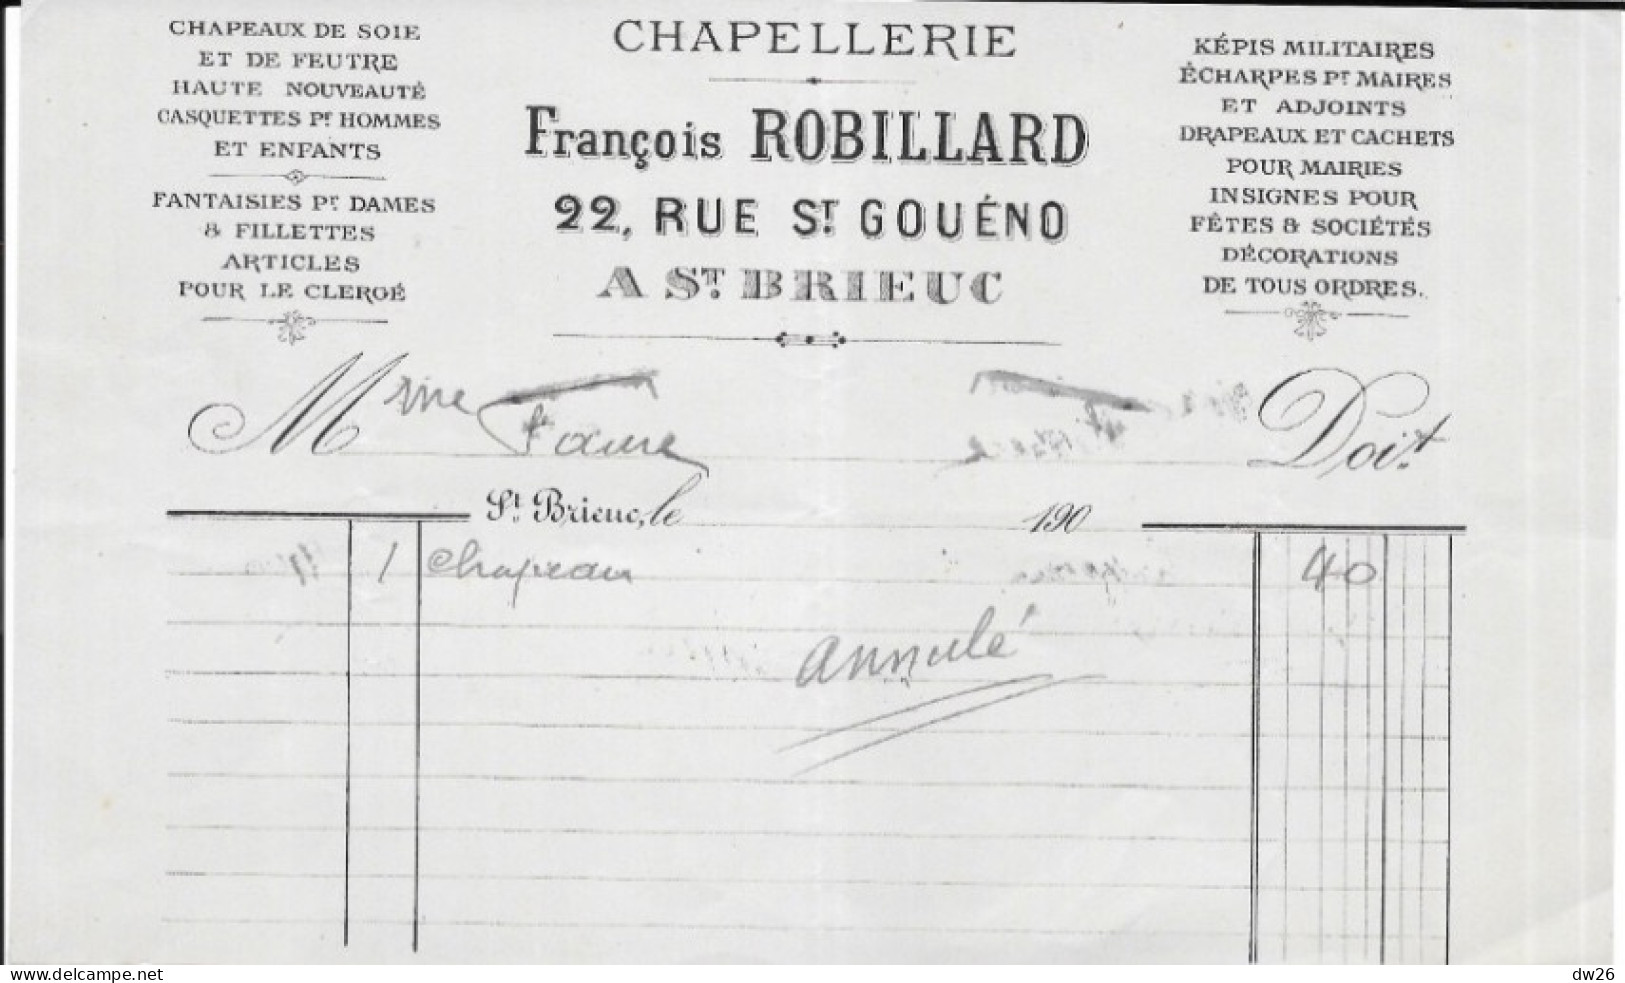 CHAPEAUX DE SOIE
ET DE FEUTRE
HAUTE NOUVEAUTÉ
CASQUETTES Pr HOMMES
ET ENFANTS
FANTAISIES Pr DAMES
& FILLETTES
ARTICLES
POUR LE CLERGÉ
CHAPELLERIE
François ROBILLARD
22, RUE St GOUÉNO
A St BRIEUC
KÉPIS MILITAIRES
ÉCHARPES Pr MAIRES
ET ADJOINTS
DRAPEAUX ET CACHETS
POUR MAIRIES
INSIGNES POUR
FÊTES & SOCIÉTÉS
DÉCORATIONS
DE TOUS ORDRES.
Mme Faure Doit
St Brieuc, le 190
1 chapeau 40
annulé
www.delcampe.net
dw26